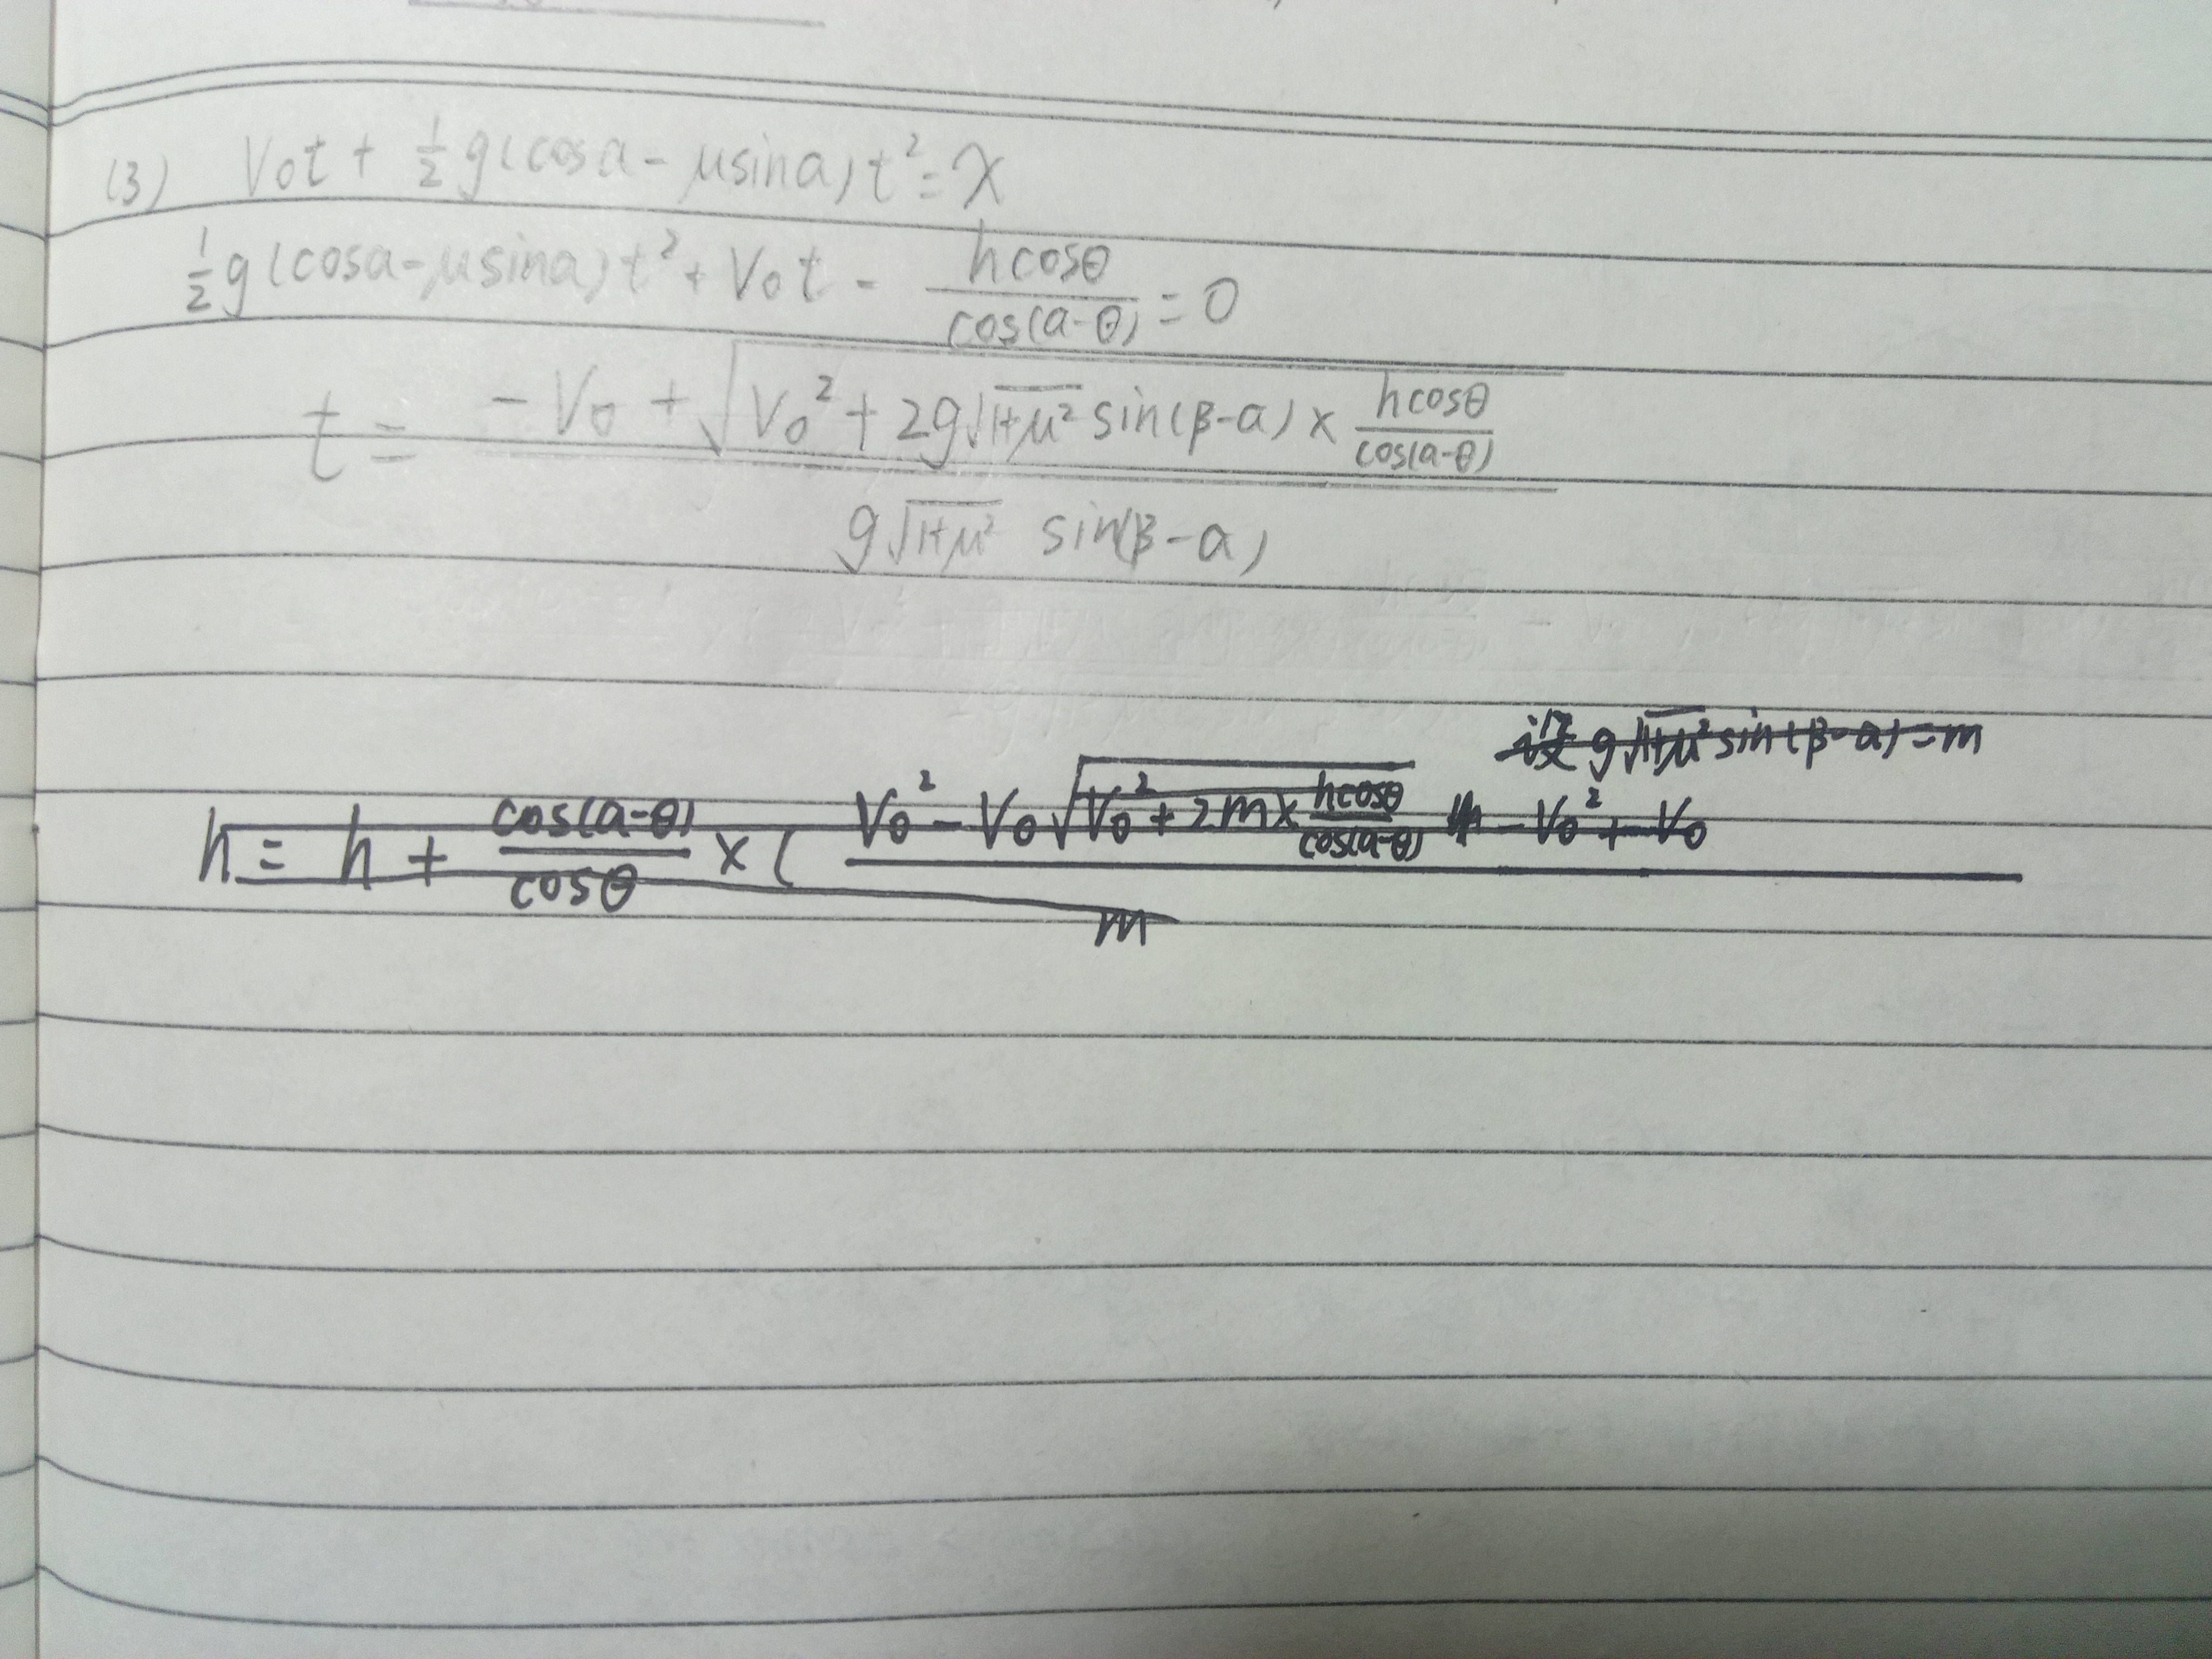 (3) V₀t + 1/2 g(cosα - μsinα)t² = x
1/2 g(cosα - μsinα)t² + V₀t - hcosθ/cos(α-θ) = 0
t = (-V₀ + √(V₀² + 2g√(1+μ²) sin(β-α) × hcosθ/cos(α-θ))) / (g√(1+μ²) sin(β-α))
设 g√(1+μ²) sin(β-α) = m
h = h + cos(α-θ)/cosθ × ( (V₀² - V₀√(V₀² + 2m × hcosθ/cos(α-θ)) - V₀² + - V₀) / m